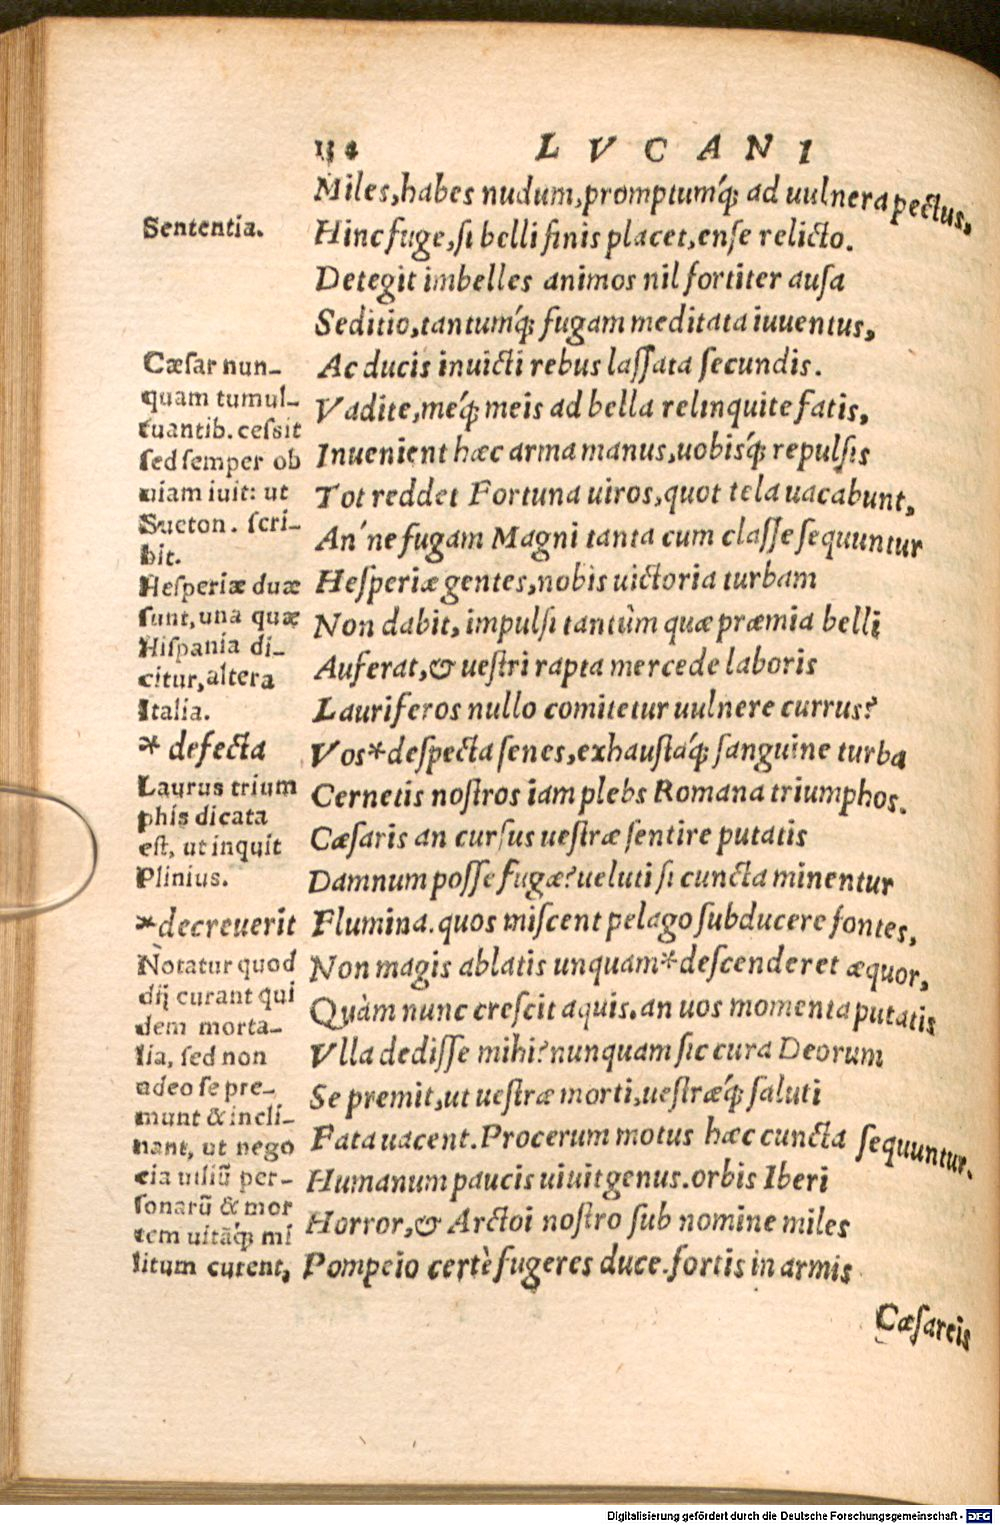 154 LVCANI
Miles,habes nudum,promptumq́; ad uulnera pectus,
Hinc fuge,si belli finis placet,ense relicto.
Detegit imbelles animos nil fortiter ausa
Seditio,tantumq́; fugam meditata iuuentus,
Ac ducis inuicti rebus lassata secundis.
Vadite,meq́; meis ad bella relinquite fatis,
Inuenient hæc arma manus,uobisq́; repulsis
Tot reddet Fortuna uiros,quot tela uacabunt,
An'ne fugam Magni tanta cum classe sequuntur
Hesperiæ gentes,nobis uictoria turbam
Non dabit, impulsi tantùm quæ præmia belli
Auferat,& uestri rapta mercede laboris
Lauriferos nullo comitetur uulnere currus?
Vos*despecta senes,exhaustaq́; sanguine turba
Cernetis nostros iam plebs Romana triumphos.
Cæsaris an cursus uestræ sentire putatis
Damnum posse fugæ?ueluti si cuncta minentur
Flumina.quos miscent pelago subducere fontes,
Non magis ablatis unquam*descenderet æquor,
Quàm nunc crescit aquis.an uos momenta putatis
Vlla dedisse mihi?nunquam sic cura Deorum
Se premit,ut uestræ morti,uestræq́; saluti
Fata uacent.Procerum motus hæc cuncta sequuntur.
Humanum paucis uiuit genus.orbis Iberi
Horror,& Arctoi nostro sub nomine miles
Pompeio certè fugeres duce.fortis in armis
Cæsareis
Sententia.
Cæsar nun-
quam tumul-
tuantib. cessit
sed semper ob
uiam iuit: ut
Sueton. scri-
bit.
Hesperiæ duæ
sunt,una quæ
Hispania di-
citur,altera
Italia.
* defecta
Laurus trium
phis dicata
est, ut inquit
Plinius.
*decreuerit
Notatur quod
dij curant qui
dem morta-
lia, sed non
adeo se pre-
munt & incli-
nant, ut nego
cia uiliũ per-
sonarũ & mor
tem uitãq́; mi
litum curent,
Digitalisierung gefördert durch die Deutsche Forschungsgemeinschaft - DFG